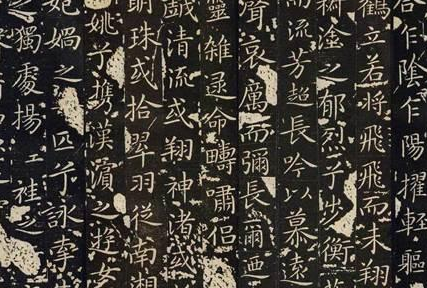 合作陰作陽擢輕軀
鶴立若將飛飛而未翔
塗之郁烈兮步衡
流芳超長吟以慕遠
聲哀厲而彌長爾迺
靈雜遝命疇嘯侣
戲清流或翔神渚或
明珠或拾翠羽從南湘
姚兮攜漢濱之遊女
媧之匹兮詠牽
之獨處揚袿之